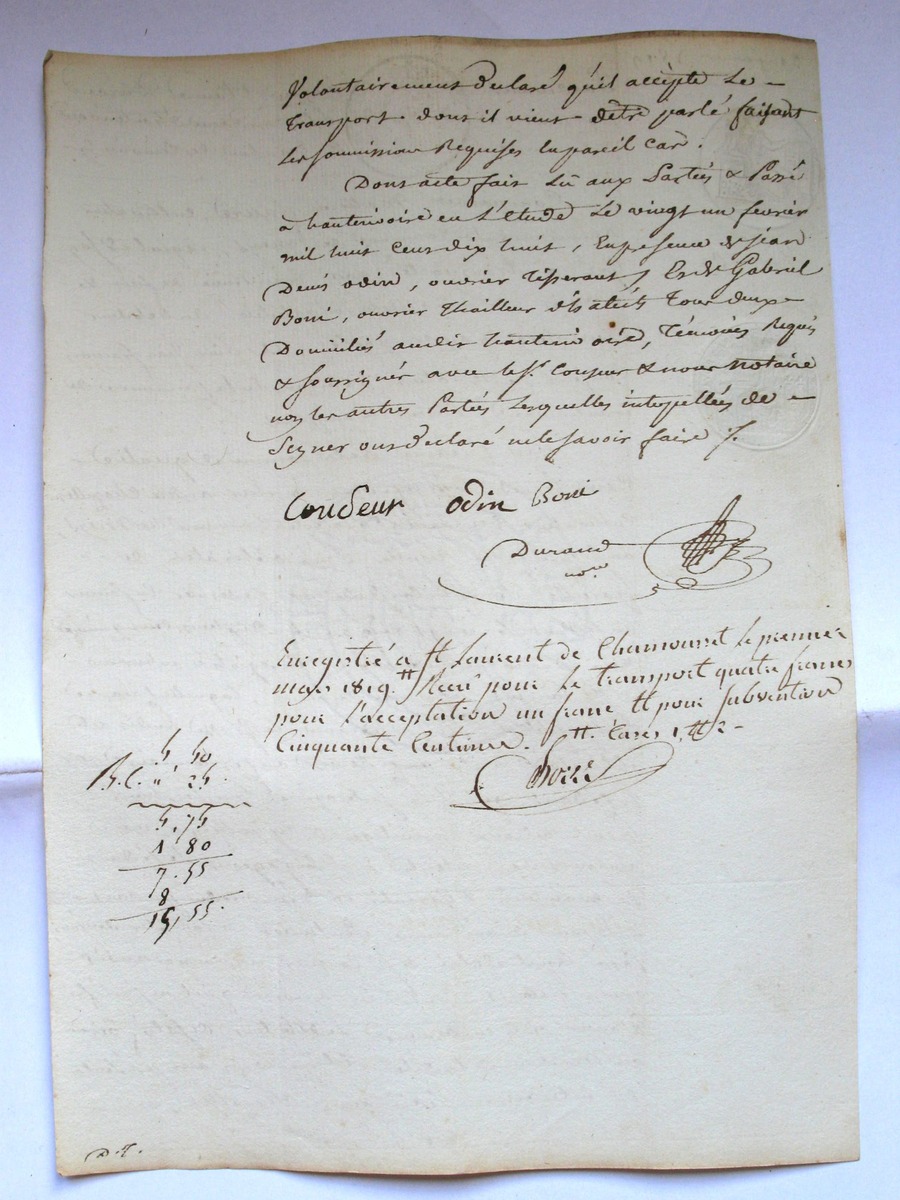 Volontairement declaré qu'il accepte Le
Transport dont il vient d'être parlé faisant
Les soumissions Requises En pareil cas.
Dont acte fait Lû aux Parties & Passé
à hauterivoire en L'Etude Le vingt un fevrier
mil huit cent dix huit, En presence de jean
Denis odin, ouvrier Tisserant, Et de Gabriel
Boni, ouvrier Thailleur d'habits Tous deux
Domiciliés audit hauterivoire, Témoins Requis
& soussignés avec le Sr. Coudeur & nous notaire
non les autres Parties Lesquelles interpellées de
Signer ont declaré ne le savoir faire ./.
Coudeur odin Boni
Durand
nore
Enregistré a St Laurent de Chamousset le premier
mars 1819. Recu pour le transport quatre francs
pour l'acceptation un franc Et pour subvention
Cinquante Centimes.
5 50
B.C. " 25.
5,75
1 80
7.55
8
15,55.
D.T.